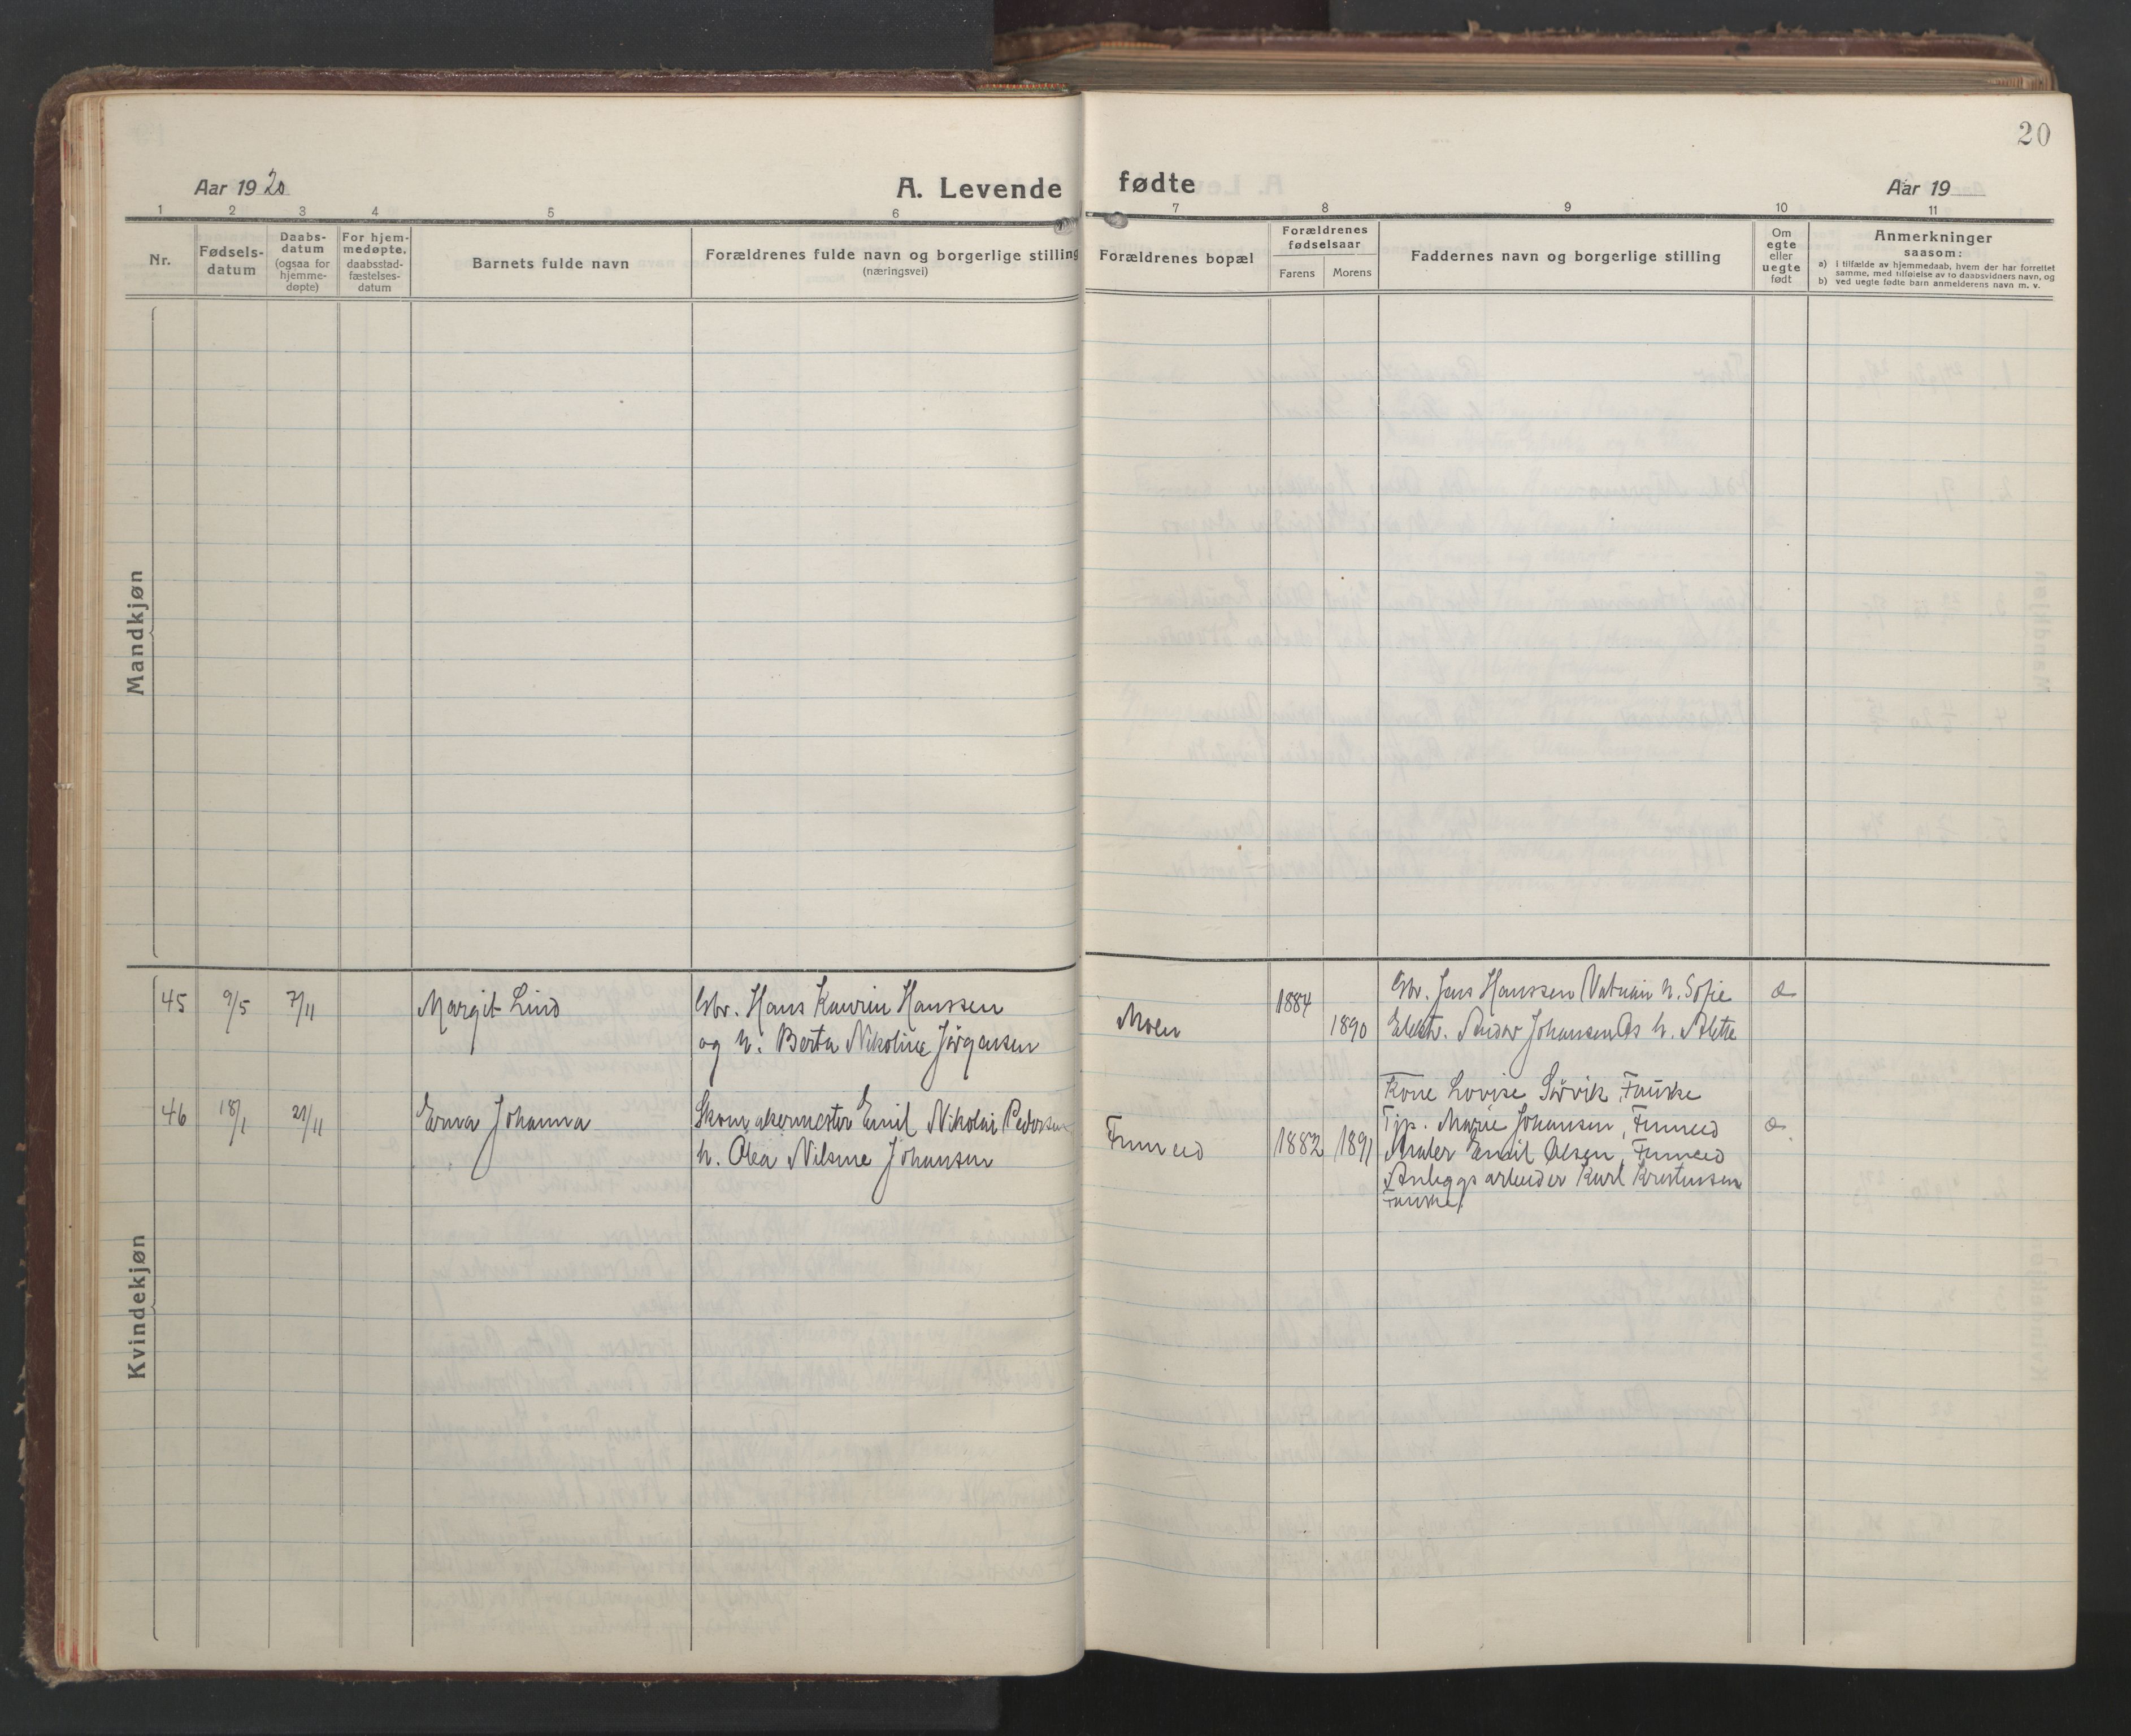 20
Aar 1920
A. Levende fødte
Aar 19
1 2 3 4 5 6 7 8 9 10 11
Nr.
Fødsels-
datum
Daabs-
datum
(ogsaa for
hjemme-
døpte)
For hjem-
medøpte.
daabsstad-
fæstelses-
datum
Barnets fulde navn
Forældrenes fulde navn og borgerlige stilling
(næringsvei)
Forældrenes bopæl
Forældrenes
fødselsaar
Farens Morens
Faddernes navn og borgerlige stilling
Om
egte
eller
uegte
født
Anmerkninger
saasom:
a) i tilfælde av hjemmedaab, hvem der har forrettet
samme, med tilføielse av to daabsvidners navn, og
b) ved uegte fødte barn anmelderens navn m. v.
Mandkjøn
Kvindekjøn
45 9/5 7/11 Margit Lind
Gbr. Hans Kaurin Hanssen
og h. Berta Nikoline Jørgensen
Moen
1884
1890
Gbr. Jens Hanssen h. Sofie
Elektr. Johansen h. Alette
e
46 18/1 21/11 Erna Johanna
Skomakermester Emil Nikolai Pedersen
h. Olea Johansen
Finneid
1882 1891
Kone Lovise Sørvik, Fauske
Tjp. Marie Johansen, Finneid
Maler Emil Olsen, Finneid
Anlegsarbeider Karl Kristensen
Fauske.
e